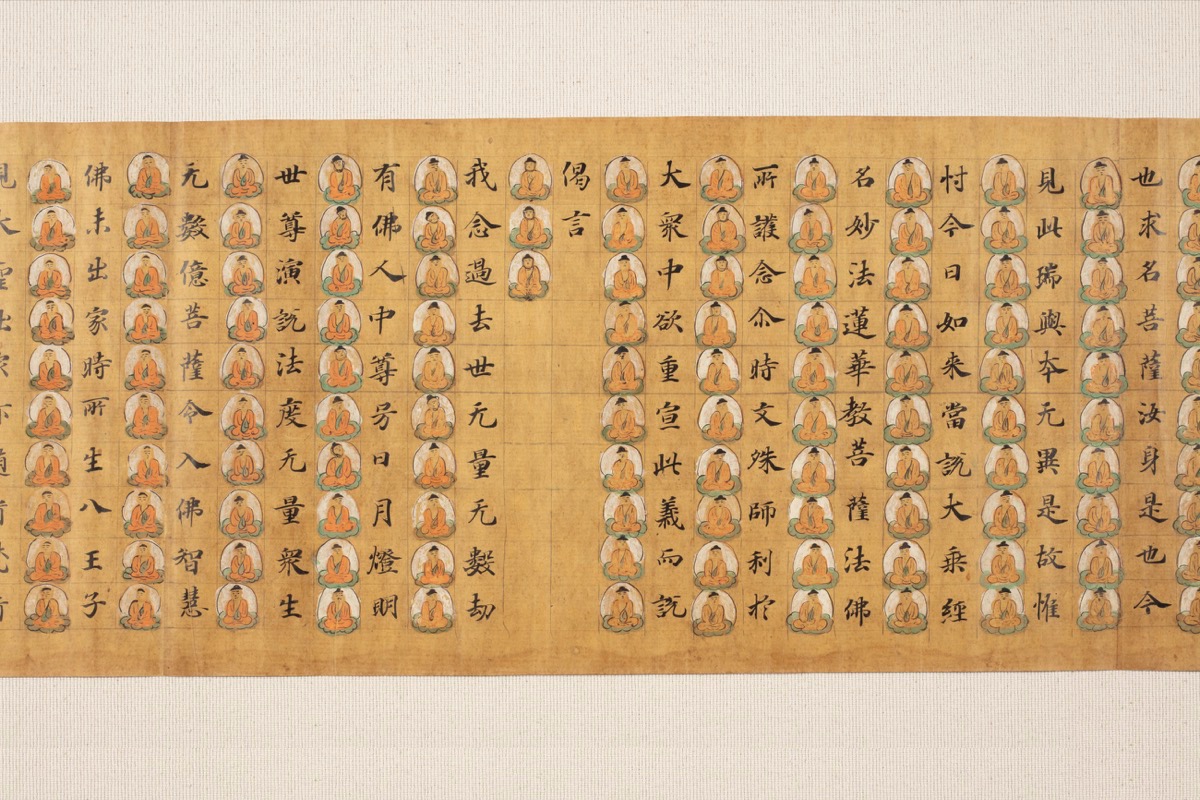 也求名菩薩汝身是也今
見此瑞與本无異是故惟
忖今日如来當說大乗經
名妙法蓮華教菩薩法佛
所護念尒時文殊師利於
大衆中欲重宣此義而說
偈言
我念過去世无量无數劫
有佛人中尊号日月燈明
世尊演說法度无量衆生
无數億菩薩令入佛智慧
佛未出家時所生八王子